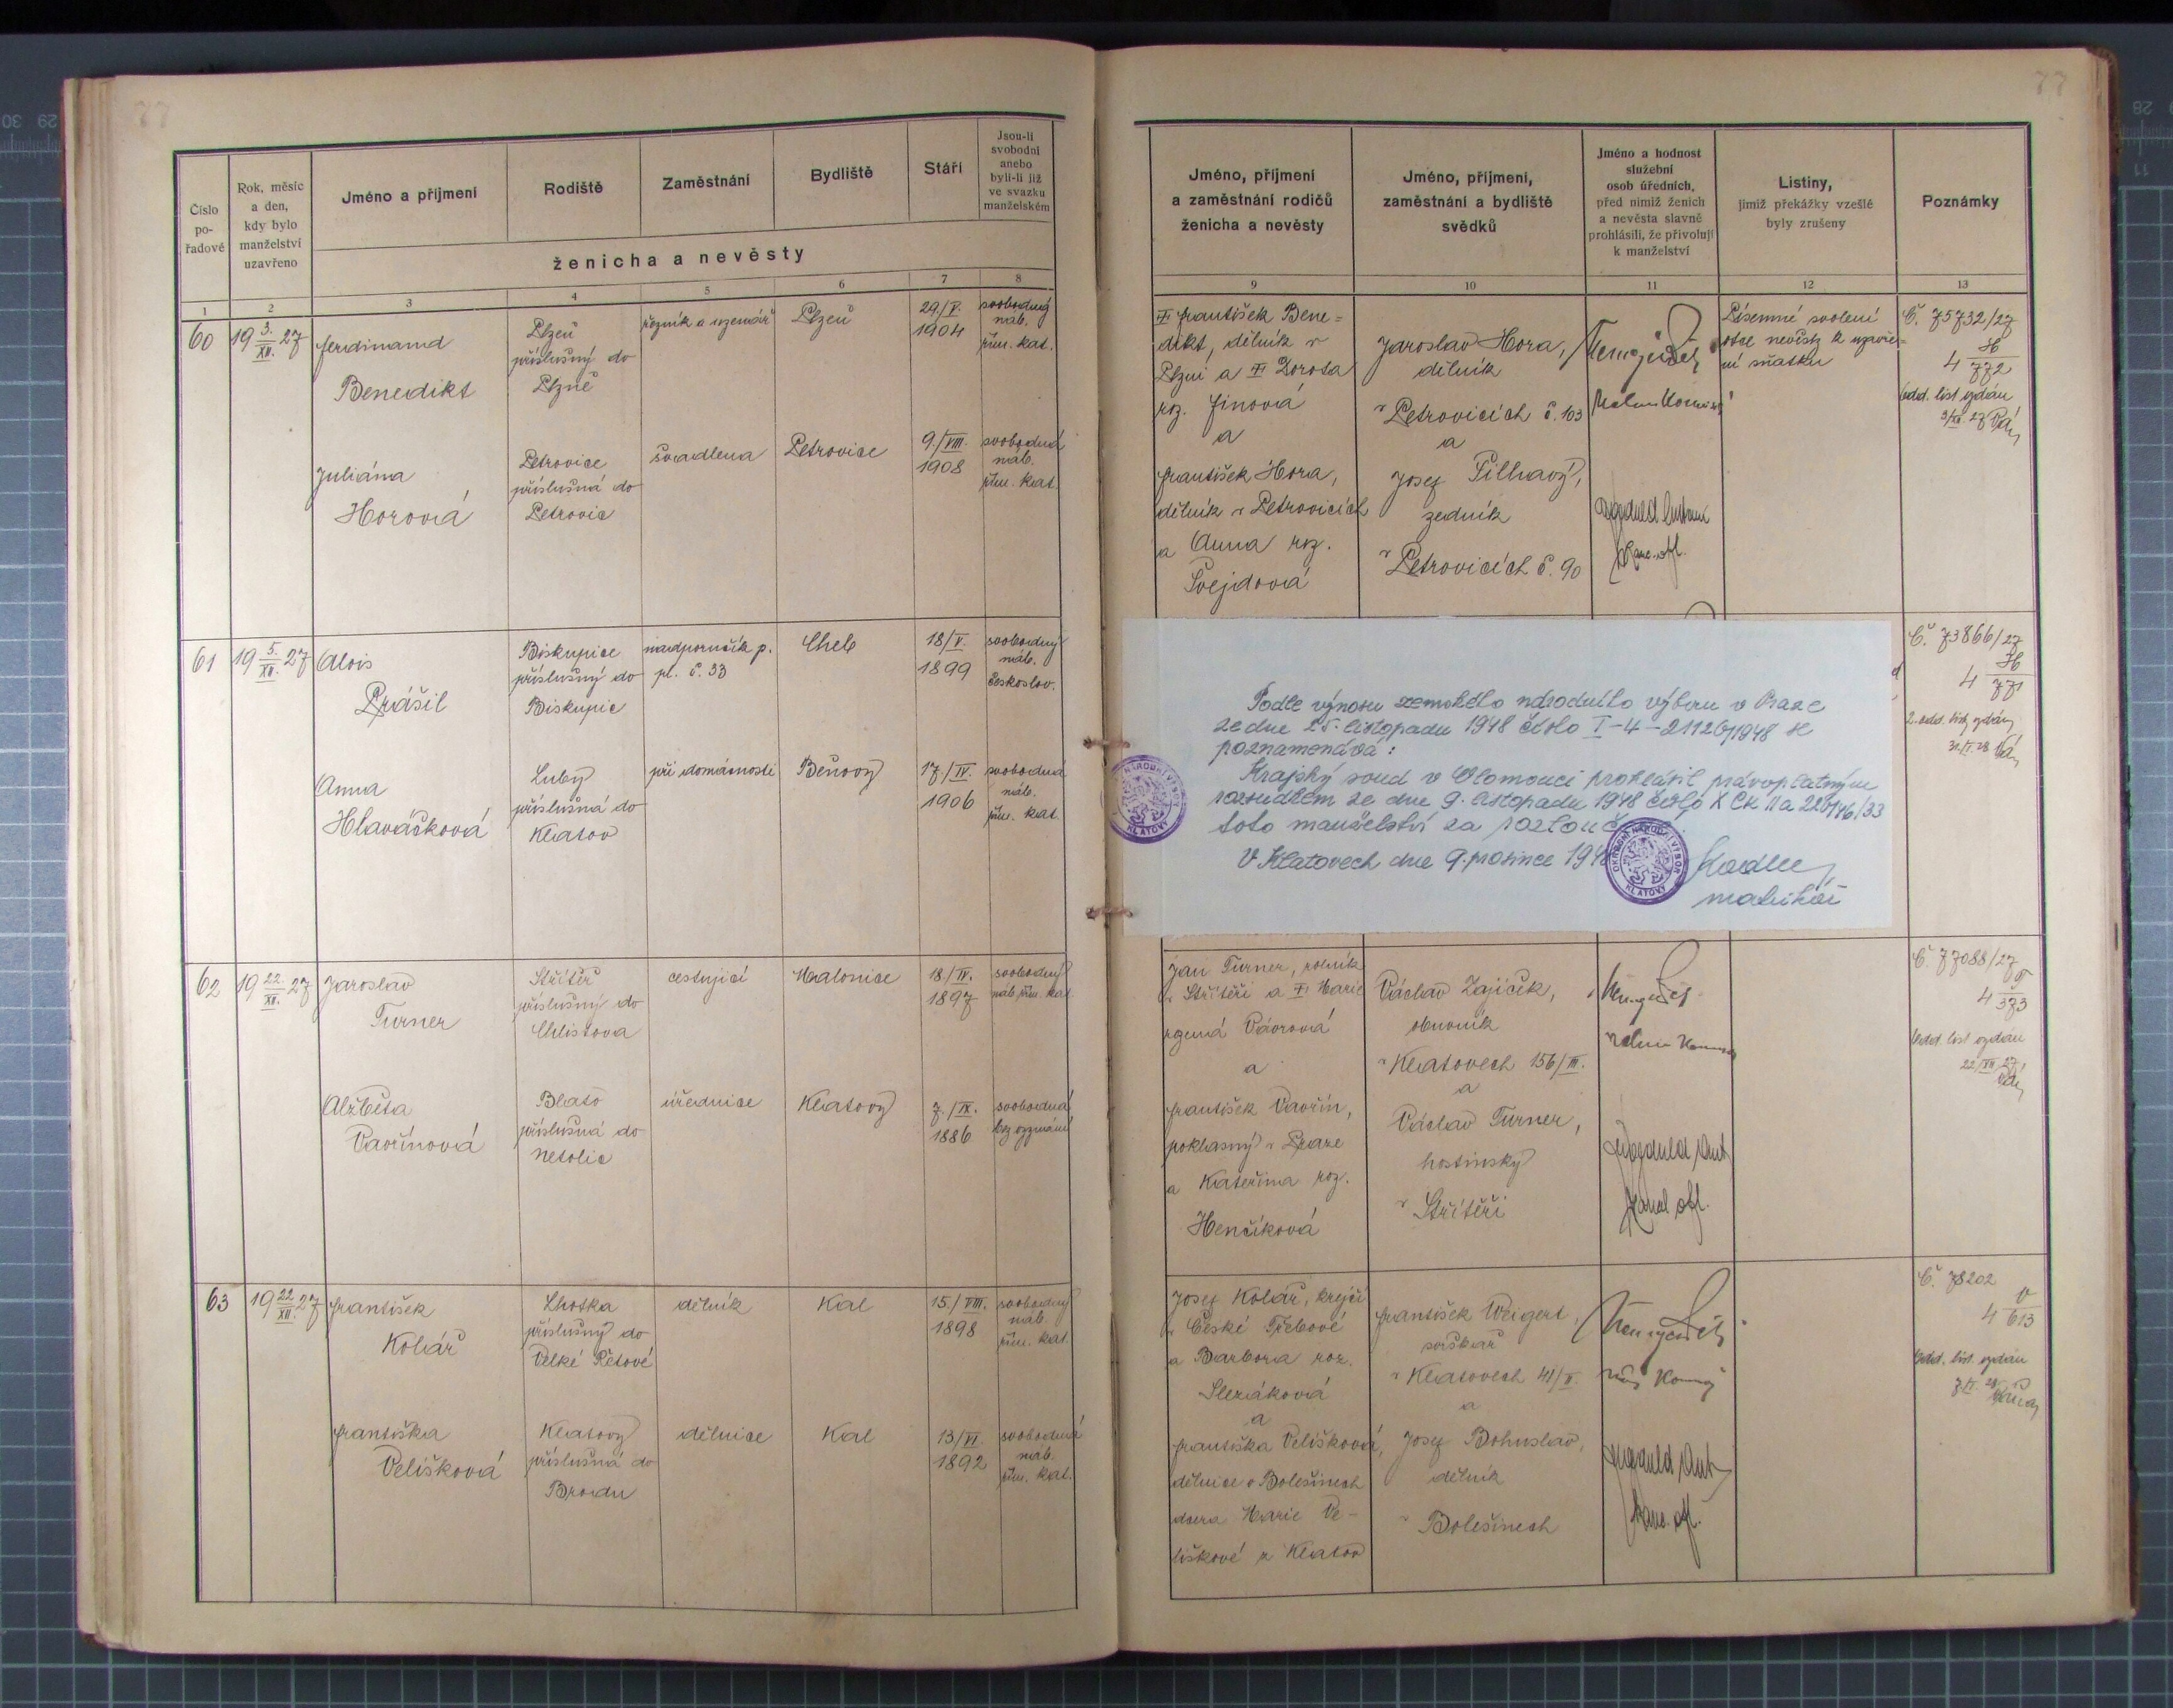 77
Číslo
po-
řadové
Rok, měsíc
a den,
kdy bylo
manželství
uzavřeno
Jméno a příjmení
Rodiště
Zaměstnání
Bydliště
Stáří
Jsou-li
svobodni
anebo
byli-li již
ve svazku
manželském
ženicha a nevěsty
1 2 3 4 5 6 7 8
60
19 3./XII. 27
Ferdinand
Benedikt
Plzeň
příslušný do
Plzně
řezník a uzenář
Plzeň
29./V.
1904
svobodný
náb.
řím. kat.
Juliána
Horová
Petrovice
příslušná do
Petrovic
švadlena
Petrovice
9./VIII.
1908
svobodná
náb.
řím. kat.
61
19 5./XII. 27
Alois
Prášil
Biskupice
příslušný do
Biskupic
nadporučík p.
pl. č. 33
Cheb
18/V.
1899
svobodný
náb.
českoslov.
Anna
Hlaváčková
Luby
příslušná do
Klatov
při domácnosti
Beňovy
17/IV.
1906
svobodná
náb.
řím. kat.
62
19 22./XII. 27
Jaroslav
Turner
Střítěř
příslušný do
Chlistova
cestující
Malonice
18/IV.
1897
svobodný
náb. řím. kat
Alžběta
Vavřínová
Blato
příslušná do
Netolic
úřednice
Klatovy
7./IX.
1886
svobodná
bez vyznání
63
19 22/XII. 27
František
Kolář
Lhotka
příslušný do
Velké Řetové
dělník
Kal
15./VIII.
1898
svobodný
náb.
řím. kat.
Františka
Velíšková
Klatovy
příslušná do
Brodu
dělnice
Kal
13/VI
1892
svobodná
náb.
řím. kat.
77
Jméno, příjmení
a zaměstnání rodičů
ženicha a nevěsty
Jméno, příjmení,
zaměstnání a bydliště
svědků
Jméno a hodnost
služební
osob úředních,
před nimiž ženich
a nevěsta slavně
prohlásili, že přivolují
k manželství
Listiny,
jimiž překážky vzešlé
byly zrušeny
Poznámky
9 10 11 12 13
František Bene=
dikt, dělník v
Plzni a Dorota
roz. Jinová
a
František Hora,
dělník v Petrovicích
a Anna roz.
Švejdová
Jaroslav Hora,
dělník
v Petrovicích č. 103
a
Josef Pilhavý,
zedník
v Petrovicích č. 90
Písemné svolení
otce nevěsty k uzavře=
ní sňatku
Č. 75732/27
4 H/772
odd. list vydán
Podle výnosu zemského národního výboru v Praze
ze dne 25. listopadu 1948 číslo I-4-21126/1948 se
poznamenává:
Krajský soud v Olomouci prohlásil právoplatným
rozsudkem ze dne 9. listopadu 1948 číslo
toto manželství za
V Klatovech dne 9. prosince
matrikář
OKRESNÍ NÁRODNÍ VÝBOR
KLATOVY
Č. 73866/27
4 H/771
2. odd. list vydán
Jan Turner, rolník
v Střítěři a Marie
rozená Vávrová
a
František Vavřín,
poklasný v Praze
a Kateřina roz.
Henčíková
Václav Zajíček,
obuvník
v Klatovech 156/III.
a
Václav Turner,
hostinský
v Střítěři
Č. 77088/27
4 T/373
odd. list vydán
22/XII 27
Josef Kolář, krejčí
v České Třebové
a Barbora roz.
Slezáková
a
Františka Velíšková,
dělnice v Bolešinech
dcera Marie Ve-
líškové z Klatov
František Weigert,
v Klatovech 41/V.
a
Josef Bohuslav,
dělník
v Bolešinech
Č. 78202
4 V/613
odd. list vydán